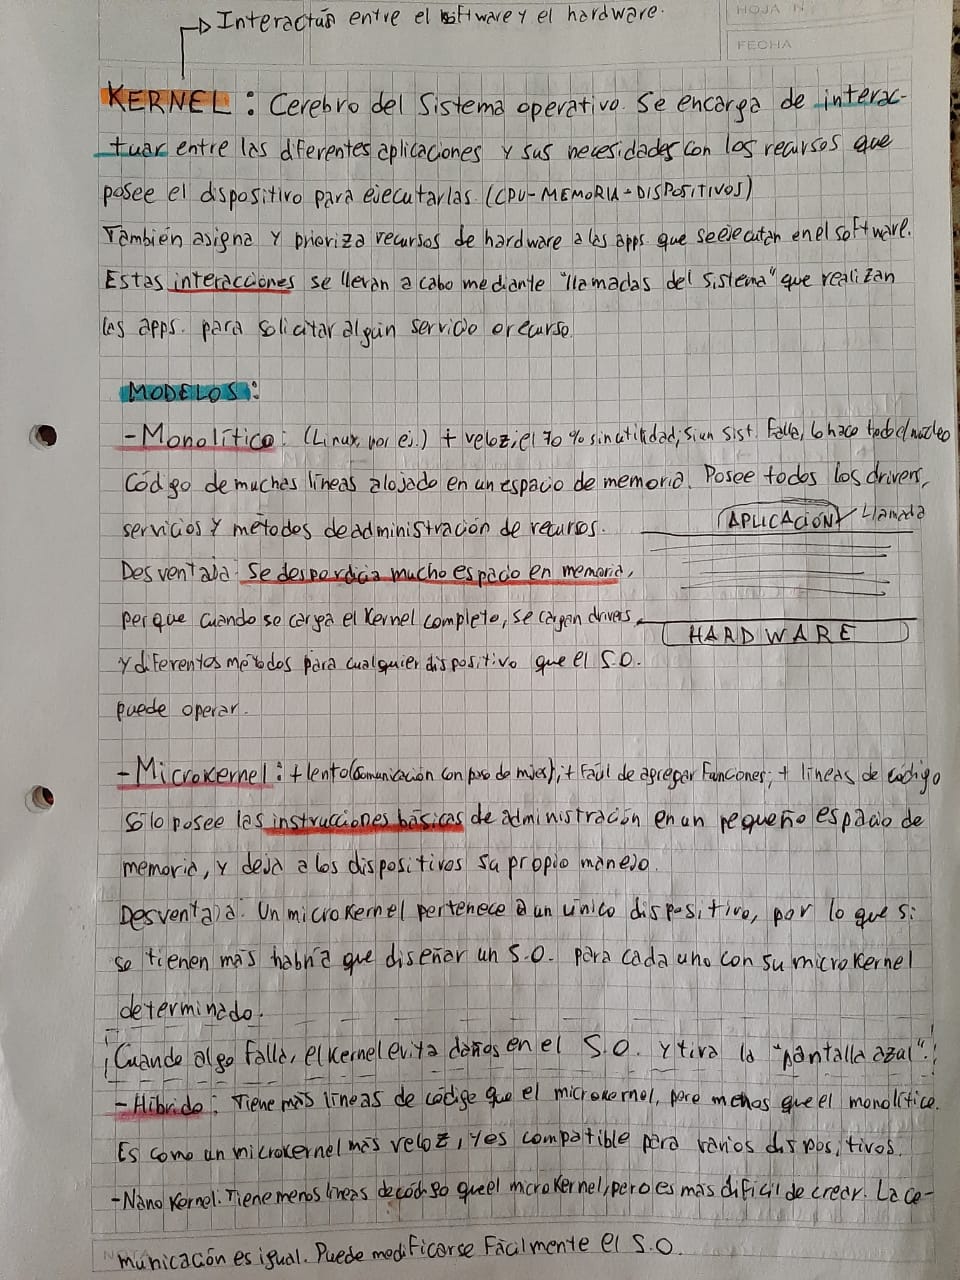 Interactúa entre el software y el hardware.
HOJA N
FECHA
KERNEL: Cerebro del Sistema operativo. Se encarga de interac-
tuar entre las diferentes aplicaciones y sus necesidades con los recursos que
posee el dispositivo para ejecutarlas (CPU-MEMORIA-DISPOSITIVOS)
También asigna y prioriza recursos de hardware a las apps. que se ejecutan en el software.
Estas interacciones se llevan a cabo mediante "llamadas del sistema" que realizan
las apps. para solicitar algún servicio o recurso.
MODELOS:
- Monolítico: (Linux, por ej.) + veloz; el 70% sin utilidad; si un sist. Falla, lo hace todo el núcleo
Código de muchas líneas alojado en un espacio de memoria. Posee todos los drivers,
servicios y métodos de administración de recursos.
APLICACIÓN Llamada
Desventaja: Se desperdicia mucho espacio en memoria,
porque cuando se carga el Kernel completo, se cargan drivers
HARDWARE
y diferentes métodos para cualquier dispositivo que el S.O.
puede operar.
- Microkernel: + lento (comunicación con paso de msjes); + Fácil de agregar Funciones; + líneas de código
Sólo posee las instrucciones básicas de administración en un pequeño espacio de
memoria, y deja a los dispositivos su propio manejo.
Desventaja: Un microkernel pertenece a un único dispositivo, por lo que si
se tienen más habría que diseñar un S.O. para cada uno con su microkernel
determinado.
¡Cuando algo falla, el kernel evita daños en el S.O. y tira la "pantalla azul".!
- Híbrido: Tiene más líneas de código que el microkernel, pero menos que el monolítico.
Es como un microkernel más veloz, y es compatible para varios dispositivos.
- Nano Kernel: Tiene menos líneas de código que el microkernel, pero es más difícil de crear. La co-
municación es igual. Puede modificarse Fácilmente el S.O.